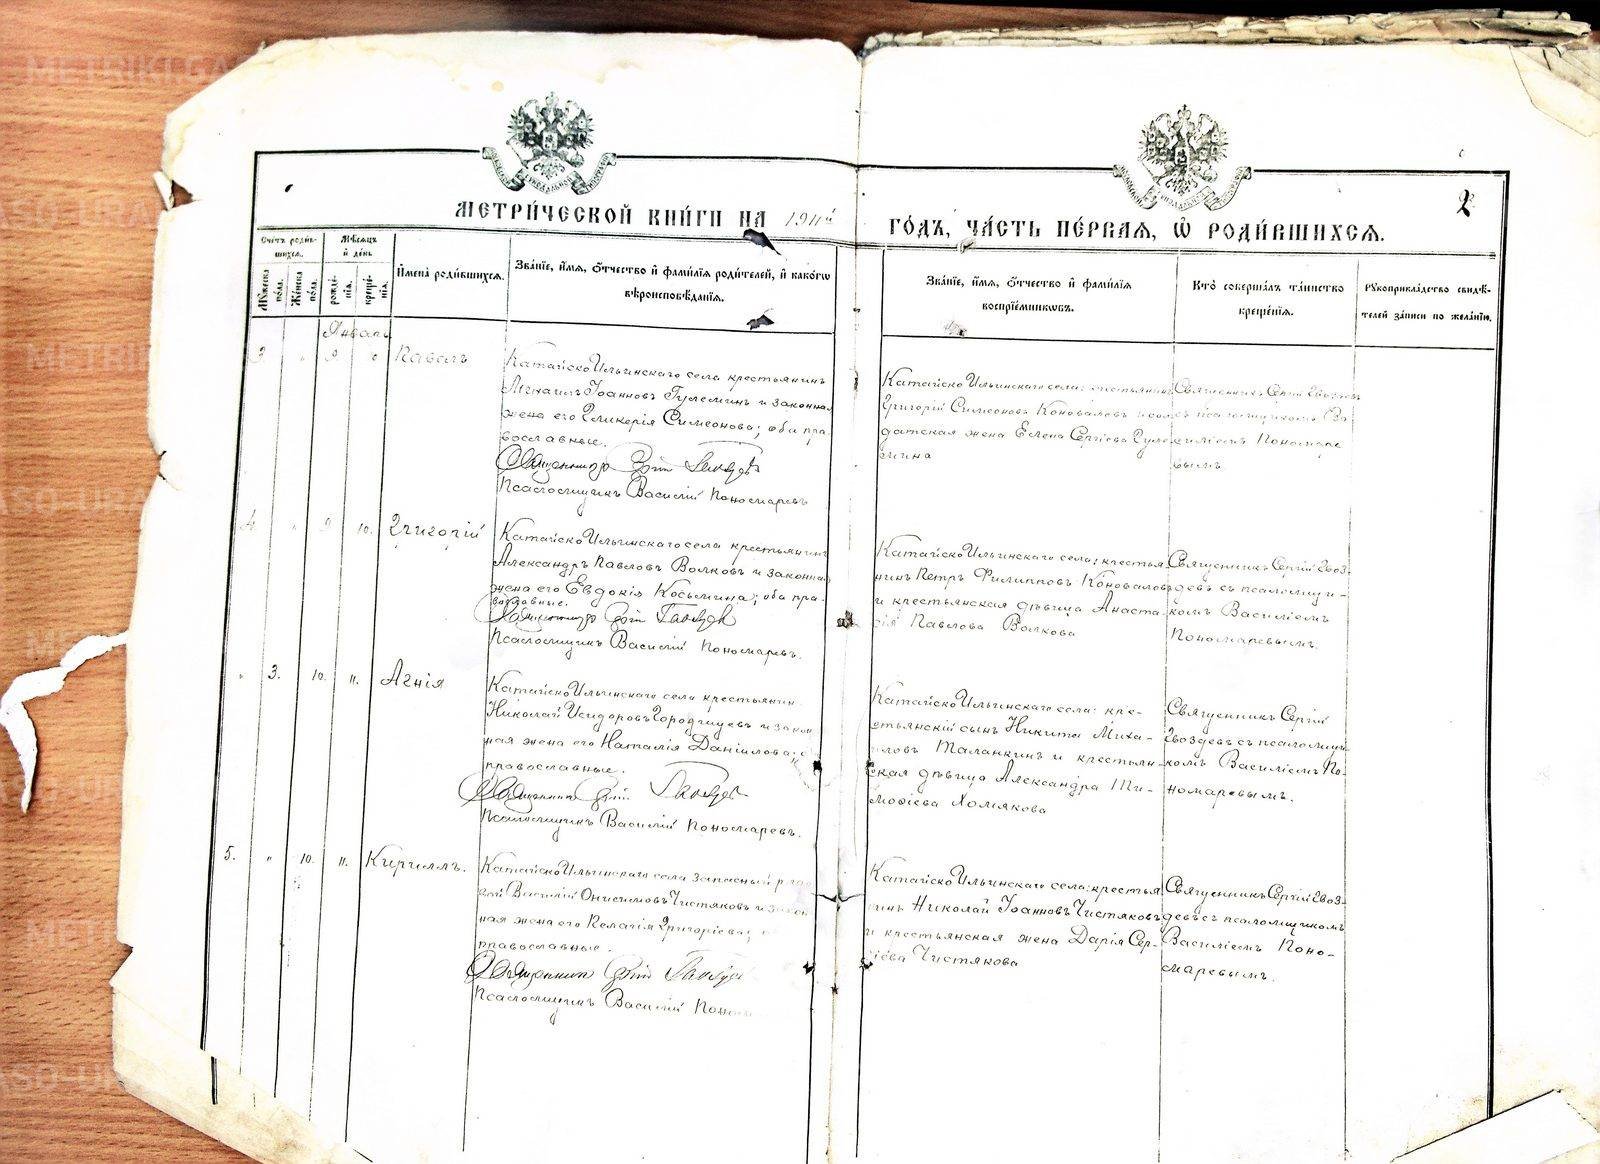 МЕТРИ́ЧЕСКОЙ КНИ́ГИ НА 1911й ГО́ДЪ, ЧА́СТЬ ПЕ́РВАЯ, Ѡ РОДИ́ВШИХСЯ.
2
Сче́тъ роди́в-
шихся.
Му́жеска по́ла.
Же́нска по́ла.
Мѣ́сяцъ
и де́нь
рожде́-
нія.
креще́-
нія.
И́мена роди́вшихся.
Зва́ніе, и́мя, о́тчество и фами́лія роди́телей, и како́гѡ
вѣроисповѣ́данія.
Зва́ніе, и́мя, о́тчество и фами́лія
воспріе́мникѡвъ.
Кто̀ соверша́лъ та́инство
креще́нія.
Рукоприкла́дство свидѣ́-
телей за́писи по жела́нію.
Январь
3 " 9 Павелъ
Катайско Ильинскаго села крестьянинъ
Михаилъ Іоанновъ Гулеминъ и законная
жена его Гликерія Симеонова; оба пра-
вославные.
Священникъ Сергій Гвоздевъ
Псаломщикъ Василій Пономаревъ
Катайско Ильинскаго села: крестьянинъ
Григорій Симеоновъ Коноваловъ и сол-
датская жена Елена Сергіева Гуле-
мина
Священникъ Сергій Гвоздевъ
съ псаломщикомъ Ва-
силіемъ Пономаре-
вымъ
4 " 9 10. Григорій
Катайско Ильинскаго села крестьянинъ
Александръ Павловъ Волковъ и законная
жена его Евдокія Косьмина; оба пра-
вославные.
Священникъ Сергій Гвоздевъ
Псаломщикъ Василій Пономаревъ.
Катайско Ильинскаго села: крестья-
нинъ Петръ Филипповъ Коноваловъ
и крестьянская дѣвица Анаста-
сія Павлова Волкова
Священникъ Сергій Гвоз-
девъ съ псаломщи-
комъ Василіемъ
Пономаревымъ.
" 3. 10. 11. Агнія
Катайско Ильинскаго села крестьянин
Николай Исидоровъ Городчищевъ и закон
ная жена его Наталія Даніилова; о
православные.
Священникъ Сергій Гвоздевъ
Псаломщикъ Василій Пономаревъ.
Катайско Ильинскаго села: кре-
стьянскій сынъ Никита Миха-
иловъ Таланкинъ и крестьян-
ская дѣвица Александра Ти-
моѳеева Хомякова
Священникъ Сергій
Гвоздевъ съ псаломщи-
комъ Василіемъ По-
номаревымъ.
5. " 10. 11. Кириллъ.
Катайско Ильинскаго села запасный рядо
вой Василій Онисимовъ Чистяковъ и закон
ная жена его Пелагія Григоріева;
православные.
Священникъ Сергій Гвоздев
Псаломщикъ Василій Поном
Катайско Ильинскаго села: крестья
нинъ Николай Іоанновъ Чистяковъ
и крестьянская жена Дарія Сер-
гіева Чистякова
Священникъ Сергій Гвоз-
девъ съ псаломщикомъ
Василіемъ Поно-
маревымъ.